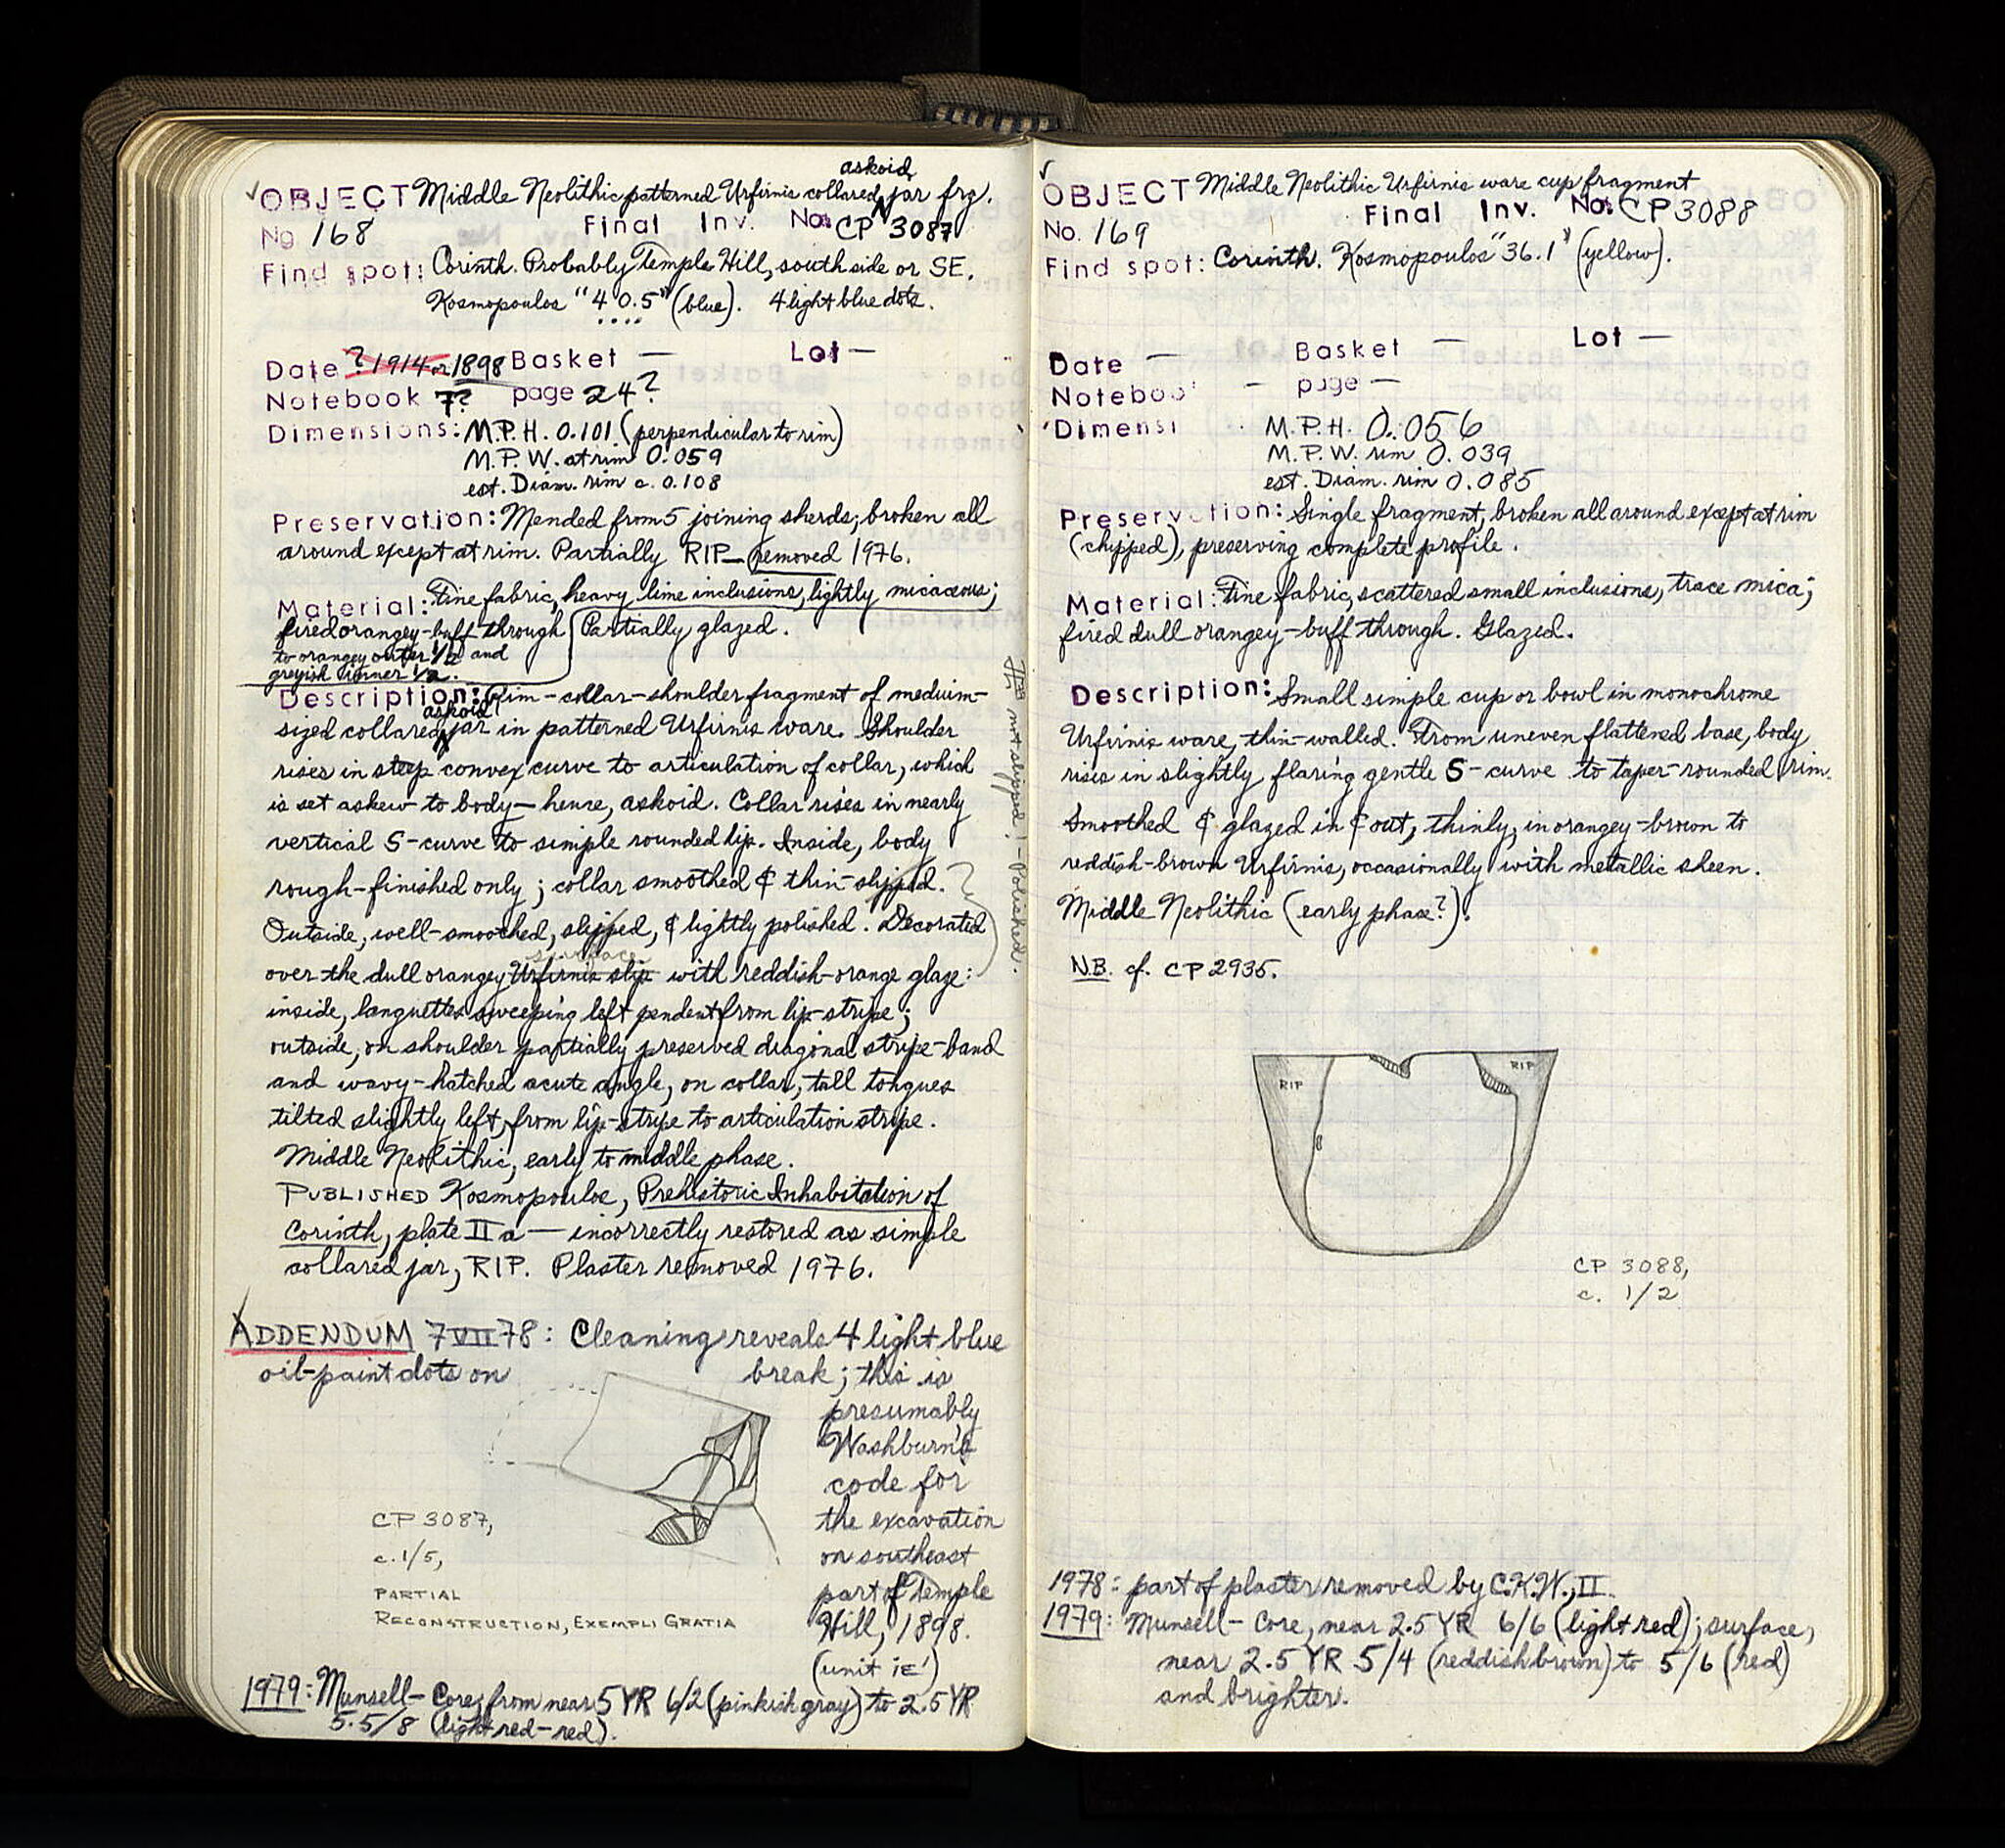 askoid
✓ OBJECT Middle Neolithic patterned Urfirnis collared jar frg.
No 168 Final Inv. No: CP 3087
Find spot: Corinth. Probably Temple Hill, south side or SE.
Kosmopoulos "4 0.5" (blue). 4 light blue dots.
Date ? 1914 or 1898 Basket — Lot —
Notebook 7? page 24?
Dimensions: M.P.H. 0.101 (perpendicular to rim)
M.P.W. at rim 0.059
est. Diam. rim c. 0.108
Preservation: Mended from 5 joining sherds; broken all
around except at rim. Partially RIP — removed 1976.
Material: Fine fabric, heavy lime inclusions, lightly micaceous;
fired orangey-buff through Partially glazed.
to orangey outer 1/2 and
greyish inner 1/2.
Description: Rim-collar-shoulder fragment of meduim-
askoid
sized collared jar in patterned Urfirnis ware. Shoulder
rises in steep convex curve to articulation of collar, which
is set askew to body — hence, askoid. Collar rises in nearly
vertical S-curve to simple rounded lip. Inside, body
rough-finished only; collar smoothed & thin-slipped.
Outside, well-smoothed, slipped, & lightly polished. Decorated
surface
over the dull orangey Urfirnis slip with reddish-orange glaze:
inside, languettes sweeping left pendent from lip-stripe;
outside, on shoulder partially preserved diagonal stripe-band
and wavy-hatched acute angle, on collar, tall tongues
tilted slightly left, from lip-stripe to articulation stripe.
Middle Neolithic, early to middle phase.
PUBLISHED Kosmopoulos, Prehistoric Inhabitation of
Corinth, plate II a — incorrectly restored as simple
collared jar, RIP. Plaster removed 1976.
not slipped! - Polished.
ADDENDUM 7 VII 78: Cleaning reveals 4 light blue
oil-paint dots on break; this is
presumably
Washburn's
code for
the excavation
on southeast
part of Temple
Hill, 1898.
(unit
CP 3087,
c. 1/5,
PARTIAL
RECONSTRUCTION, EXEMPLI GRATIA
1979: Munsell — Core, from near 5 YR 6/2 (pinkish gray) to 2.5 YR
5.5/8 (light red-red).
✓ OBJECT Middle Neolithic Urfirnis ware cup fragment
No. 169 Final Inv. No: CP 3088
Find spot: Corinth. Kosmopoulos "36.1" (yellow).
Date — Basket — Lot —
Noteboo — page —
Dimensi M.P.H. 0.056
M.P.W. rim 0.039
est. Diam. rim 0.085
Preservation: Single fragment, broken all around except at rim
(chipped), preserving complete profile.
Material: Fine fabric, scattered small inclusions, trace mica;
fired dull orangey-buff through. Glazed.
Description: Small simple cup or bowl in monochrome
Urfirnis ware, thin-walled. From uneven flattened base, body
rises in slightly flaring gentle S-curve to taper-rounded rim.
Smoothed & glazed in & out, thinly, in orangey-brown to
reddish-brown Urfirnis, occasionally with metallic sheen.
Middle Neolithic (early phase?).
N.B. cf. CP 2935.
RIP RIP
CP 3088,
c. 1/2
1978: part of plaster removed by C.K.W., II.
1979: Munsell — Core, near 2.5 YR 6/6 (light red); surface,
near 2.5 YR 5/4 (reddish brown) to 5/6 (red)
and brighter.